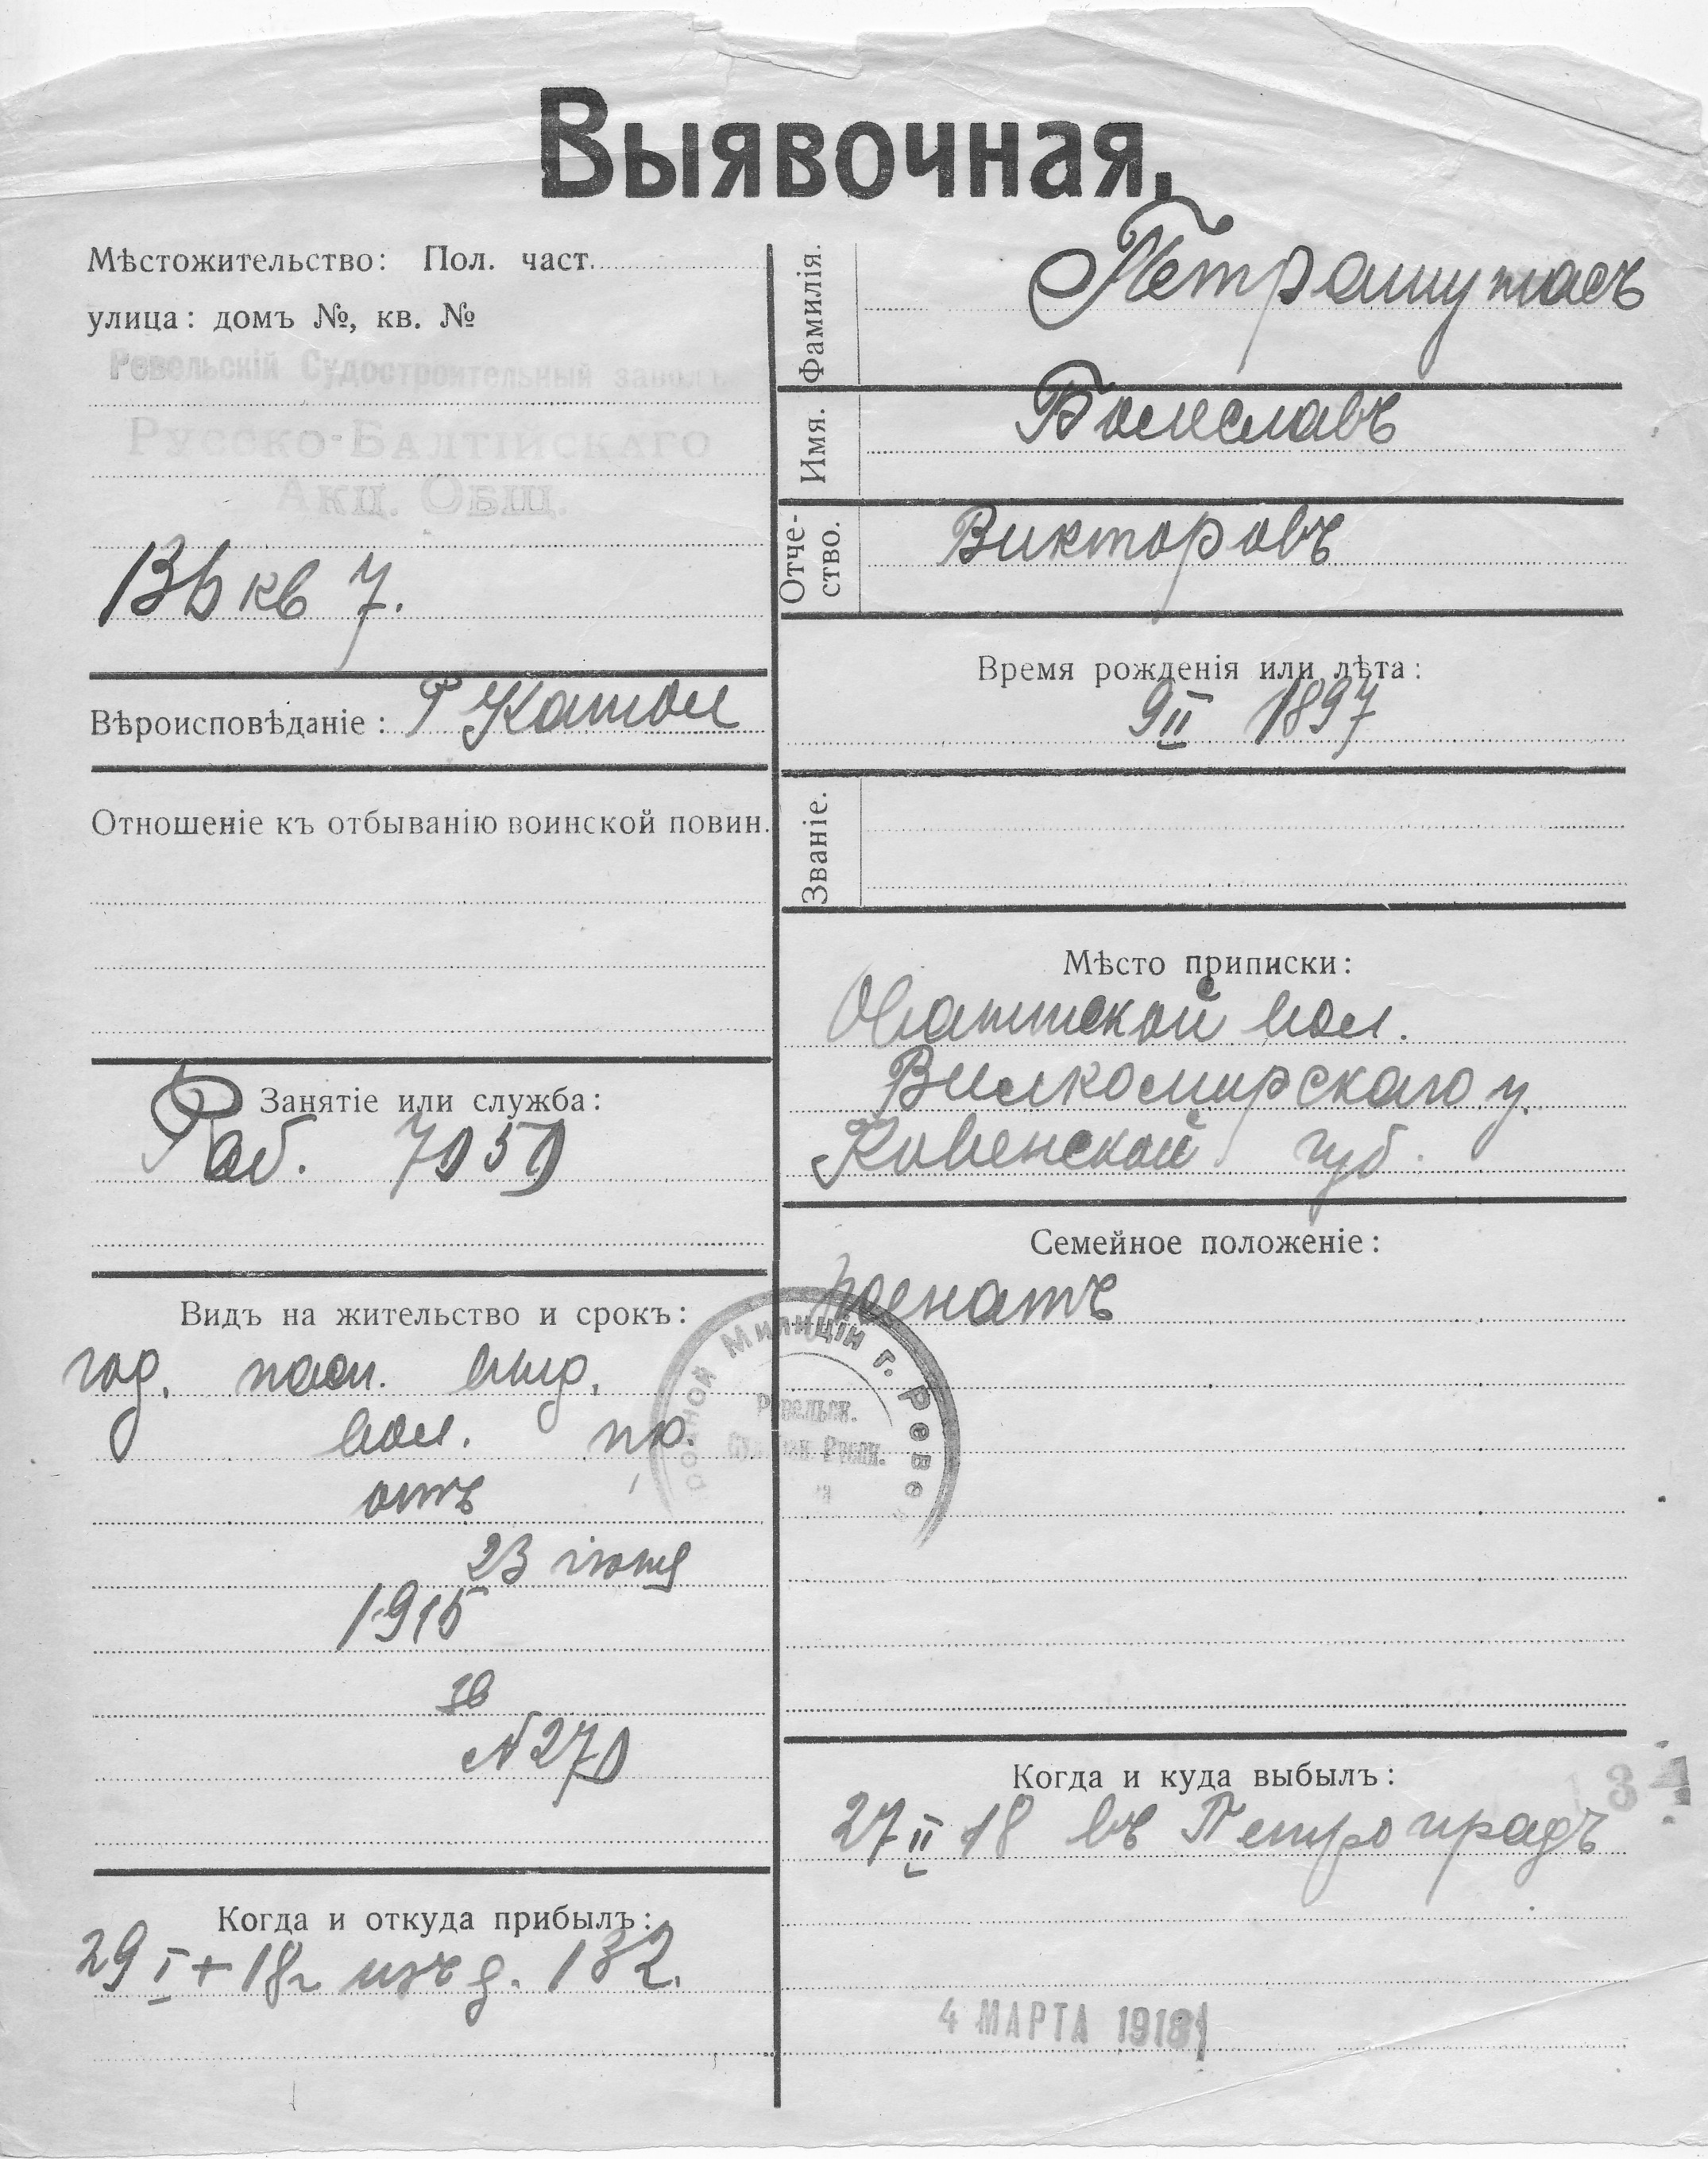 Выявочная.
Мѣстожительство: Пол. част.
улица: домъ №, кв. №
Ревельскій Судостроительный заводъ
Русско-Балтійскаго
Акц. Общ.
13b кв 7.
Вѣроисповѣданіе: Р Катол
Отношеніе къ отбыванію воинской повин.
Занятіе или служба:
Раб. 7050
Видъ на жительство и срокъ:
год. пасп. выд.
вол. пр.
отъ
23 іюня
1915
№ 270
Когда и откуда прибылъ:
29 I 18г изъ д. 132.
Фамилія. Петрашунасъ
Имя. Болеславъ
Отче-
ство. Викторовъ
Время рожденія или лѣта:
9 II 1897
Званіе.
Мѣсто приписки:
вол.
Вилкомирскаго у.
Ковенской губ.
Семейное положеніе:
женатъ
Милиціи г. Реве
Ревельск.
Когда и куда выбылъ:
27 II 18 въ Петроградъ
4 МАРТА 1918